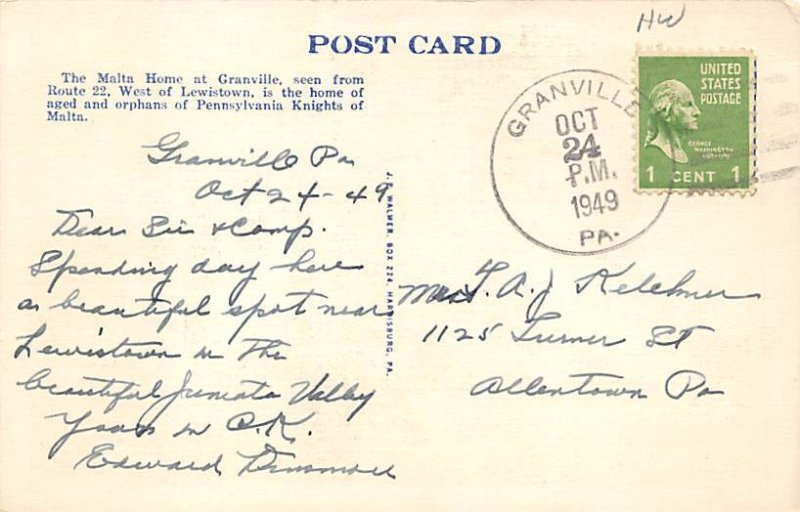 HW
POST CARD
The Malta Home at Granville, seen from
Route 22, West of Lewistown, is the home of
aged and orphans of Pennsylvania Knights of
Malta.
Granville Pa
Oct 24-49
Dear Sir & Comp.
Spending day here
a beautiful spot near
Lewistown in the
beautiful Juniata Valley
Yours in C.K.
Edward Dinsmore
J. B. WALMER, BOX 224, HARRISBURG, PA.
GRANVILLE
OCT
24
P.M.
1949
PA.
UNITED
STATES
POSTAGE
GEORGE
WASHINGTON
1 CENT 1
A. J. Kelchner
1125 Turner St
Allentown Pa